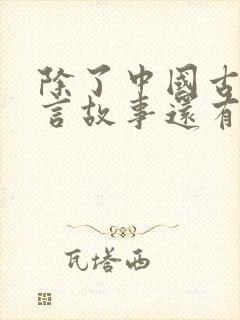 除了中國古
言故事還有
瓦塔西